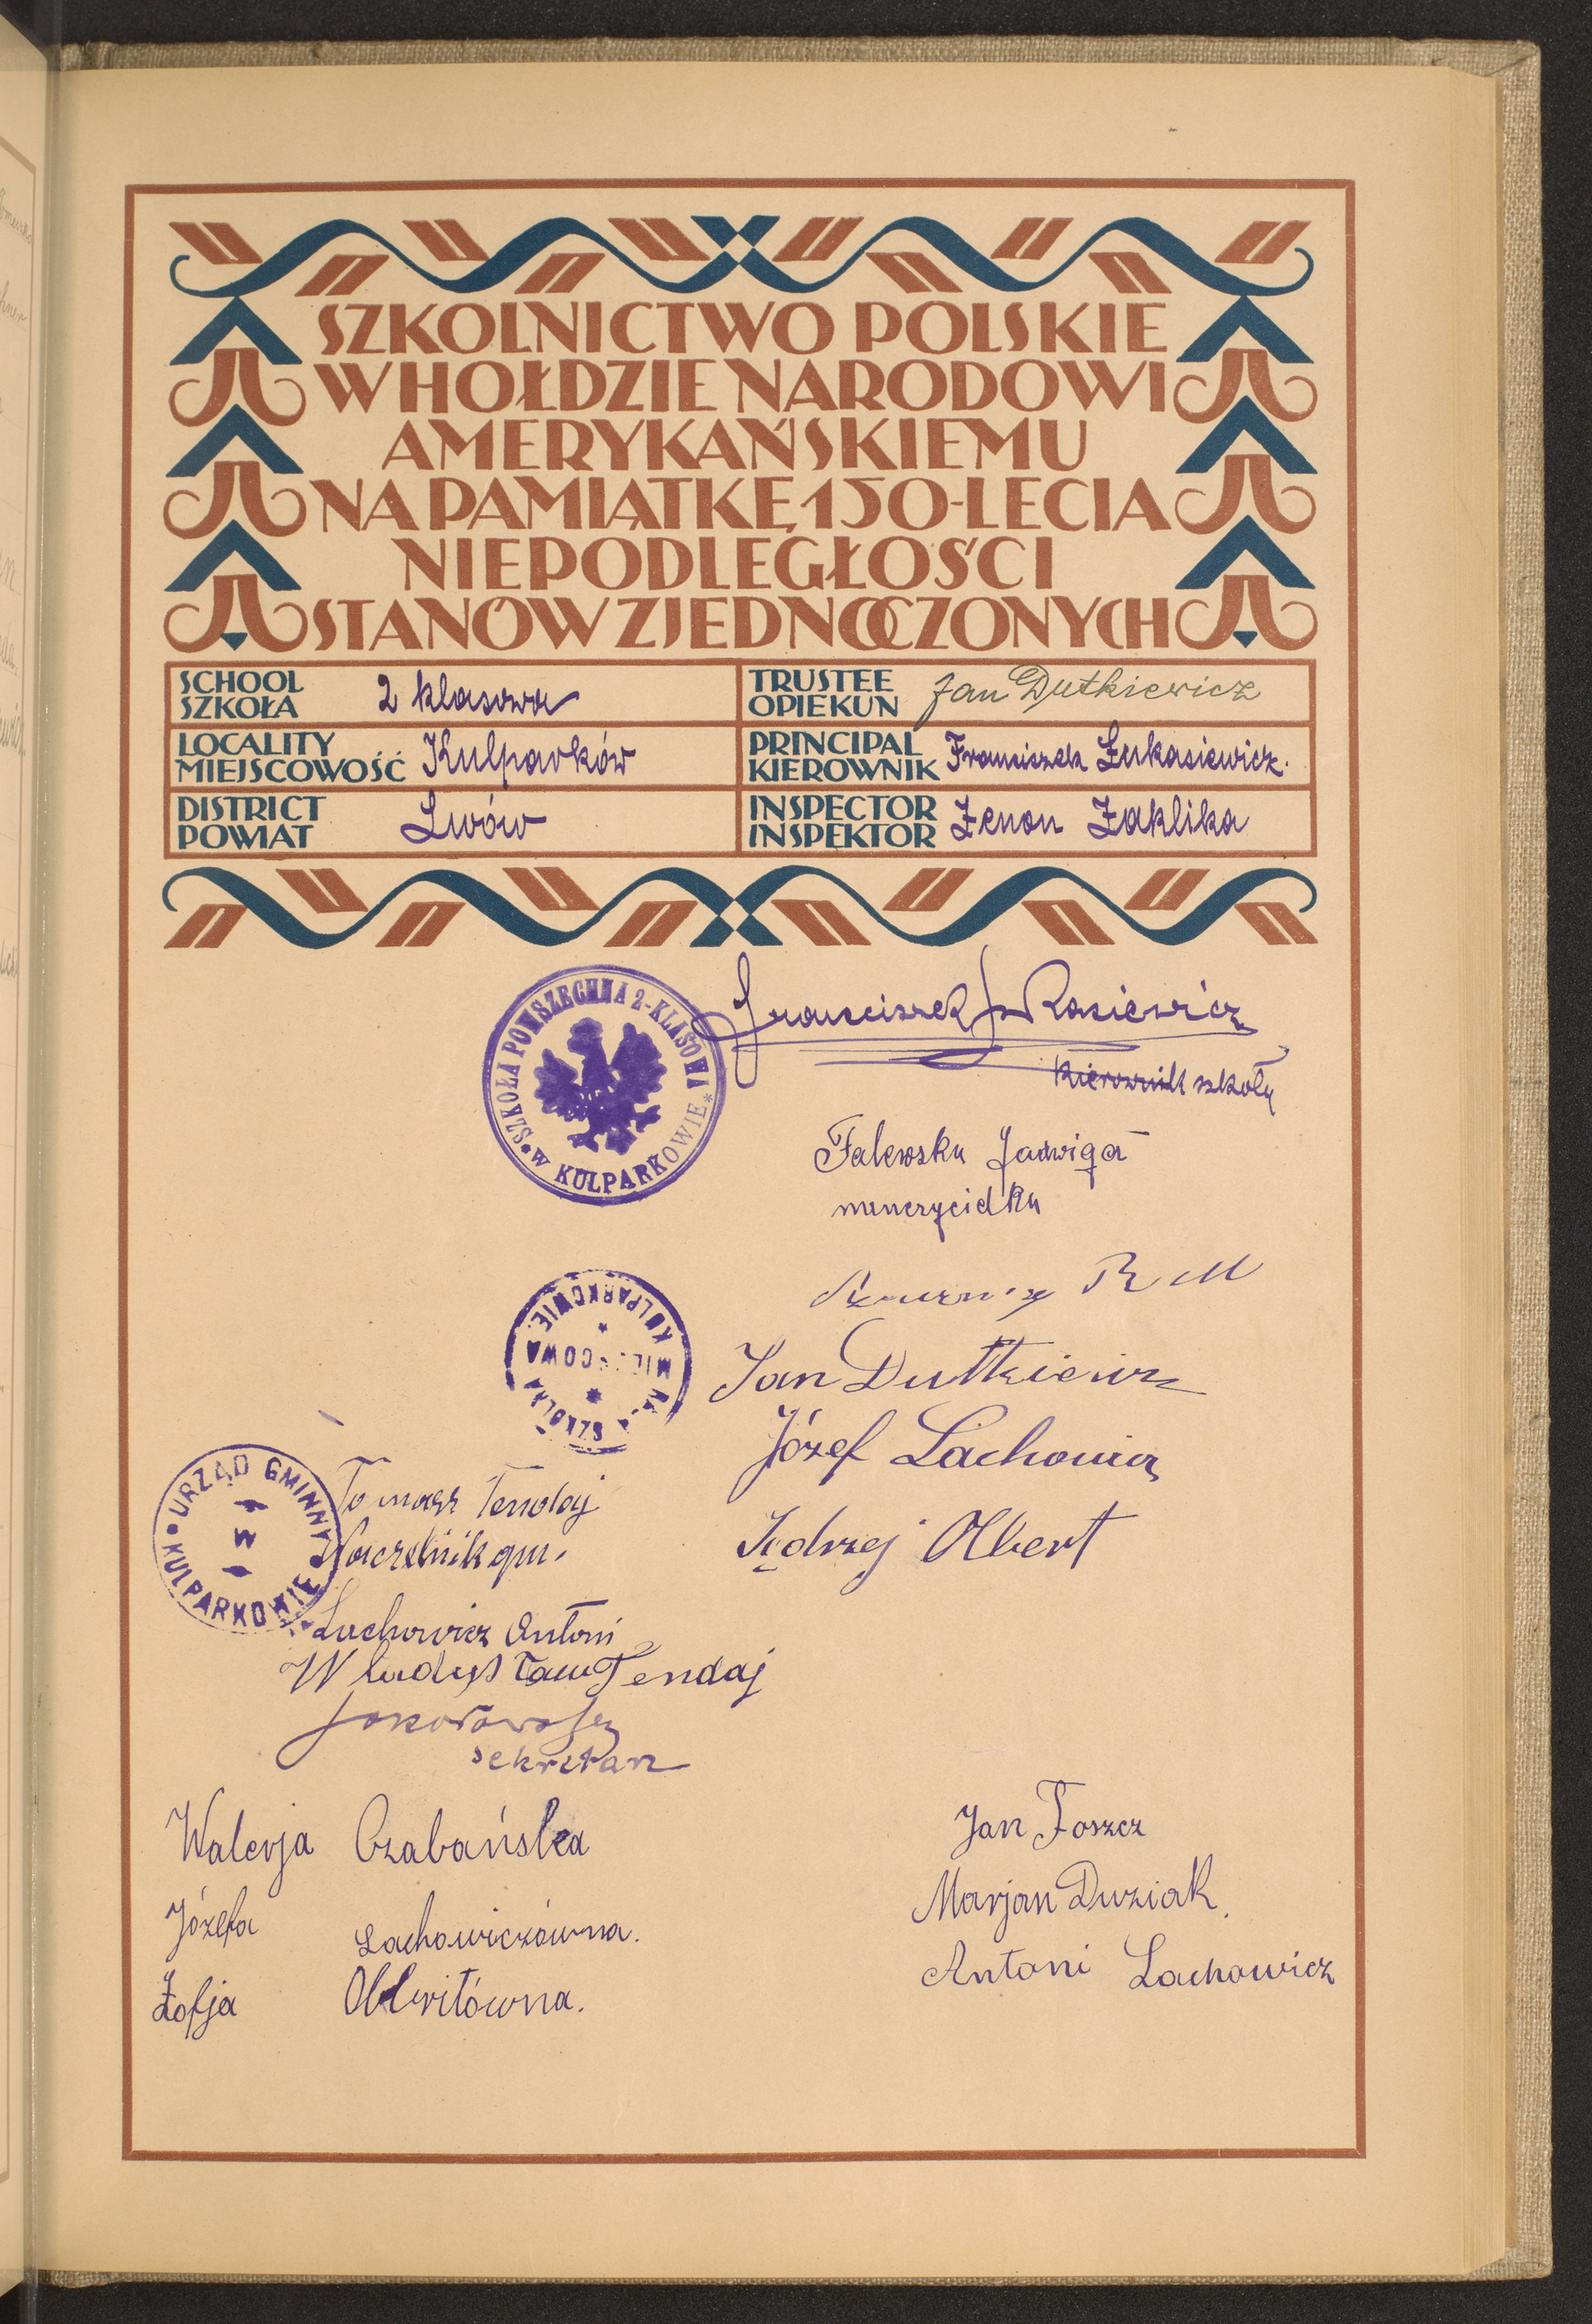 SZKOLNICTWO POLSKIE
W HOŁDZIE NARODOWI
AMERYKAŃSKIEMU
NA PAMIĄTKĘ 150-LECIA
NIEPODLEGŁOŚCI
STANÓW ZJEDNOCZONYCH
SCHOOL
SZKOŁA
2 klasowa
TRUSTEE
OPIEKUN
Jan Dutkiewicz
LOCALITY
MIEJSCOWOŚĆ
Kulparków
PRINCIPAL
KIEROWNIK
Franciszek Łukasiewicz.
DISTRICT
POWIAT
Lwów
INSPECTOR
INSPEKTOR
Zenon Zaklika
SZKOŁA POWSZECHNA 2-KLASOWA
* W KULPARKOWIE *
Franciszek Łukasiewicz
Kierownik szkoły
Falewska Jadwiga
nauczycielka
R M
SZKOLNA
KULPARKOWIE.
Jan Dutkiewicz
Józef Lachowicz
Jędrzej Olbert
URZĄD GMINNY
W
KULPARKOWIE
Tomasz Tendaj
Naczelnik gm.
Lachowicz Antoni
Władysław Tendaj
sekretarz
Walerja Czabańska
Józefa Lachowiczówna.
Zofja
Jan Foszcz
Marjan Duziak.
Antoni Lachowicz